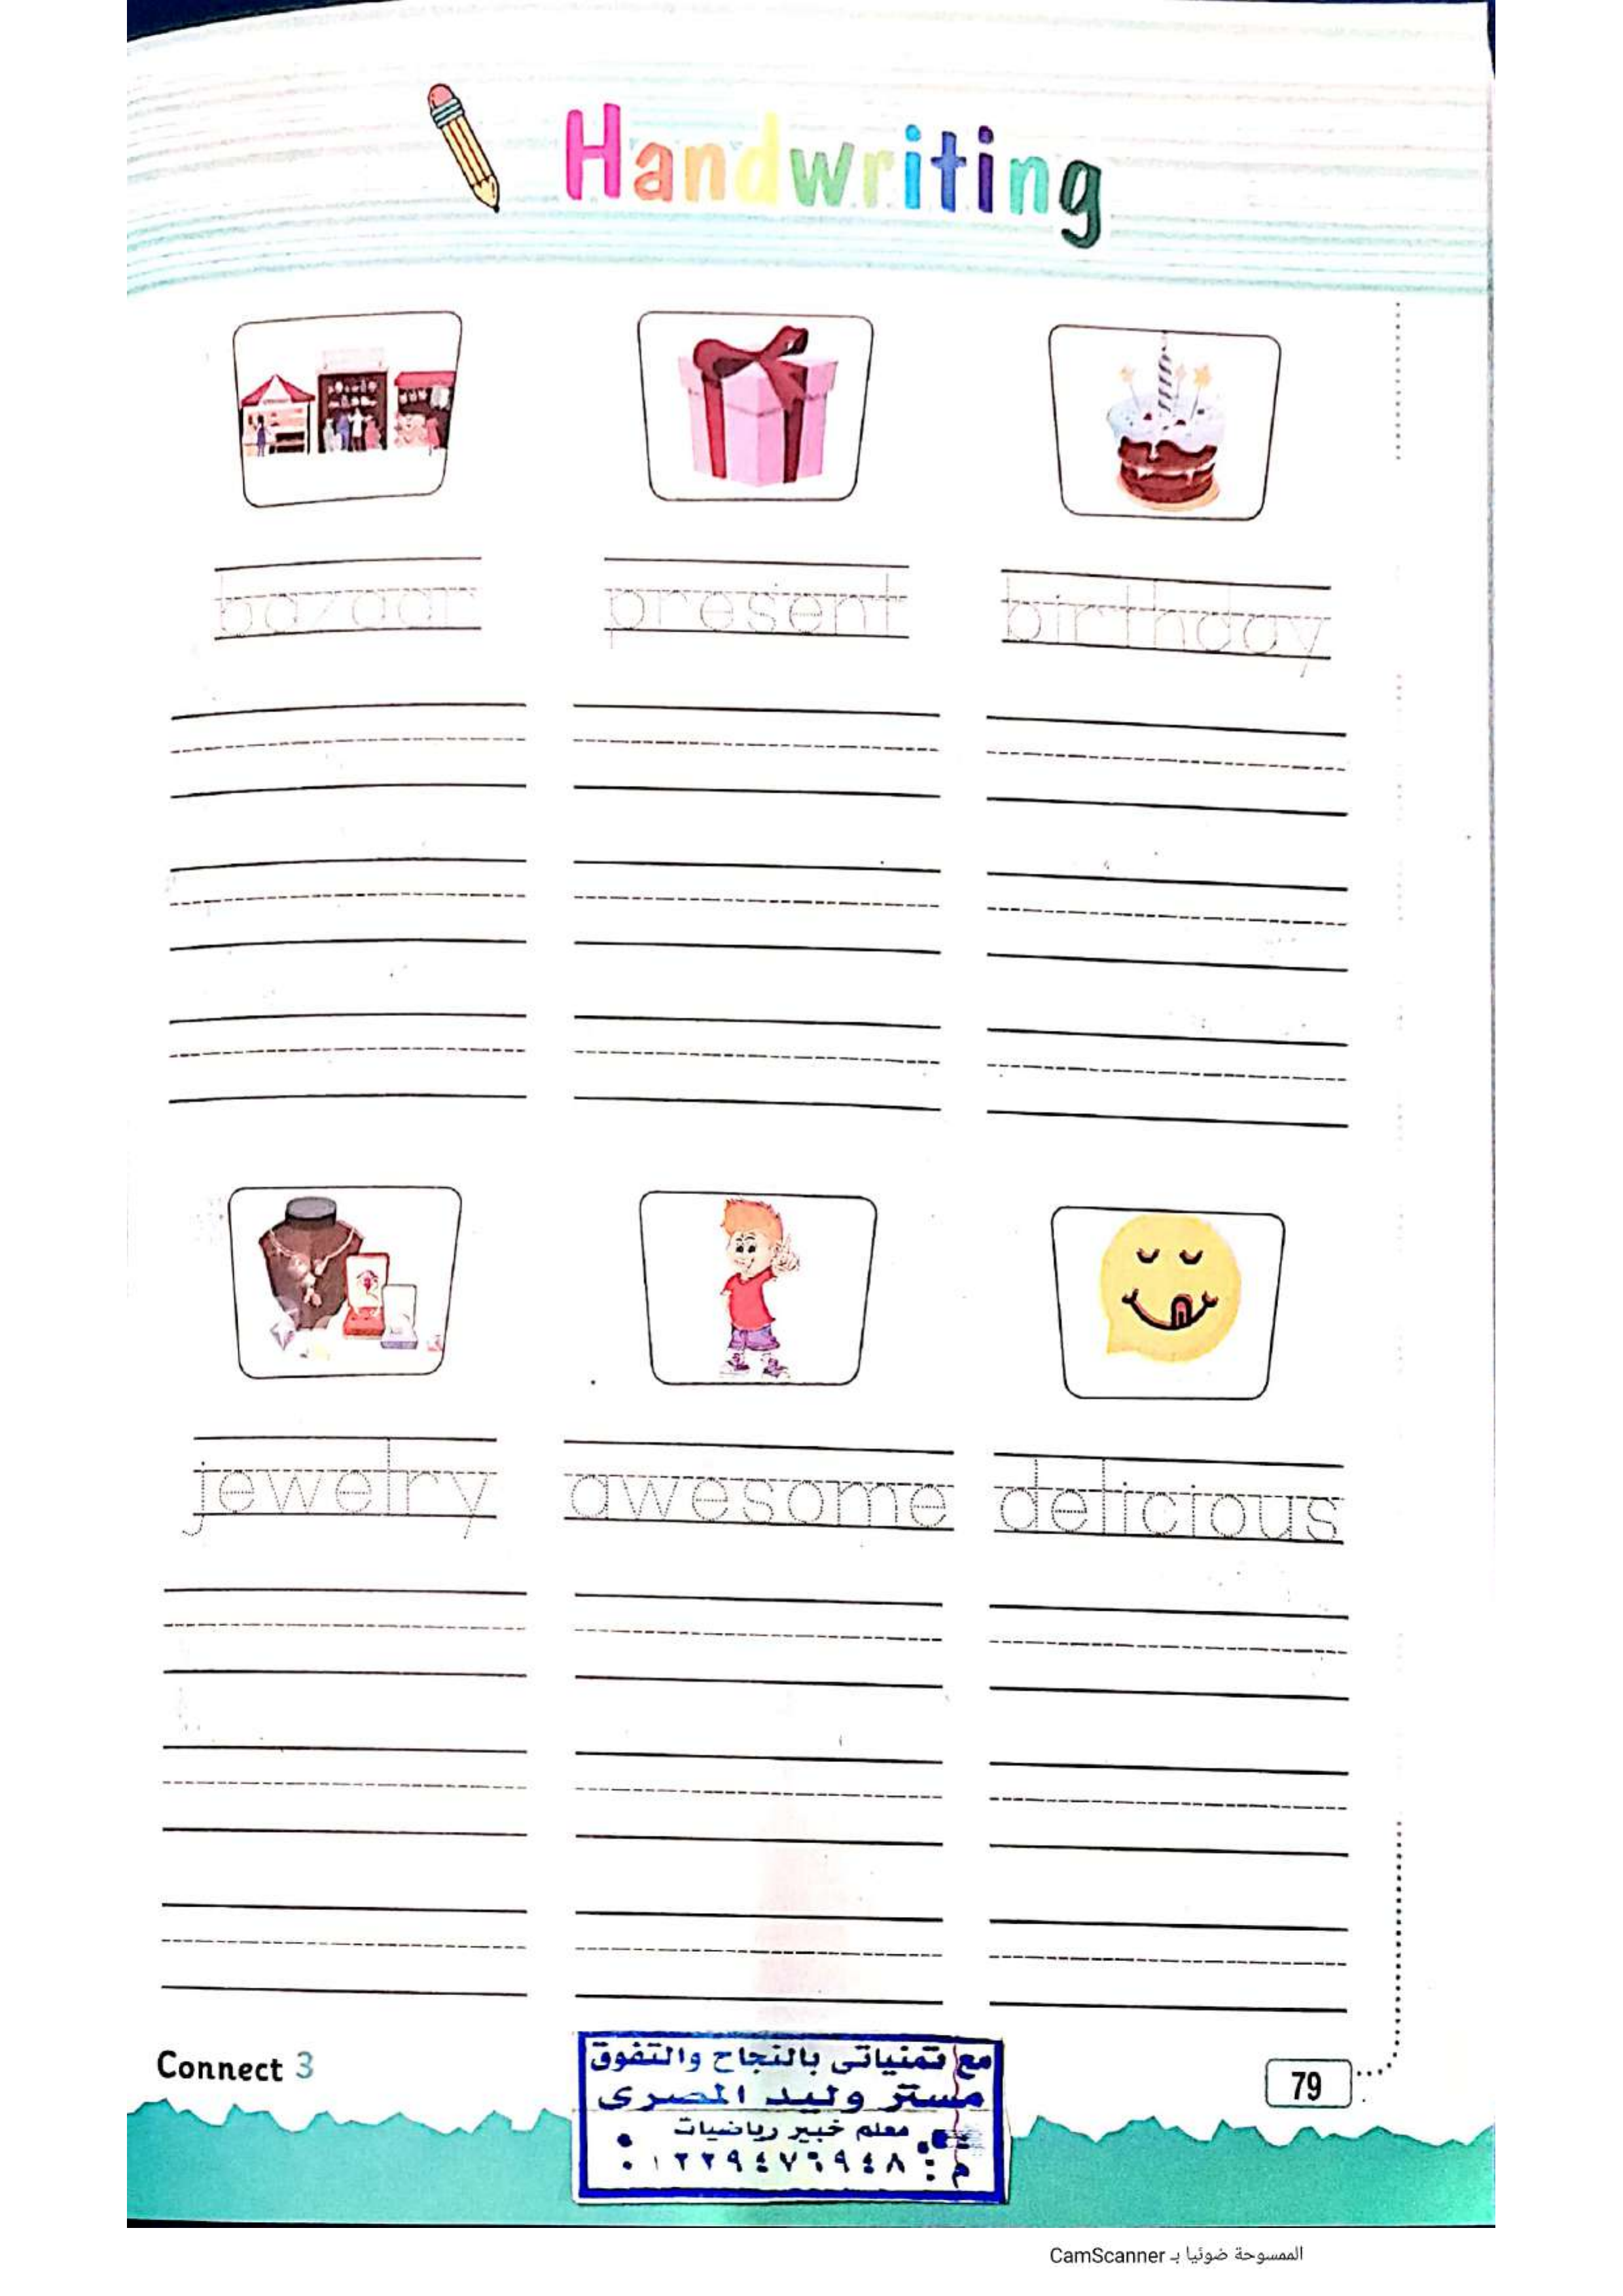 Handwriting
bazaar present birthday
jewelry awesome delicious
Connect 3
مع تمنياتى بالنجاح والتفوق
مستر وليد المصرى
معلم خبير رياضيات
م: ٠١٢٢٩٤٧٦٩٤٨
79
الممسوحة ضوئيا بـ CamScanner